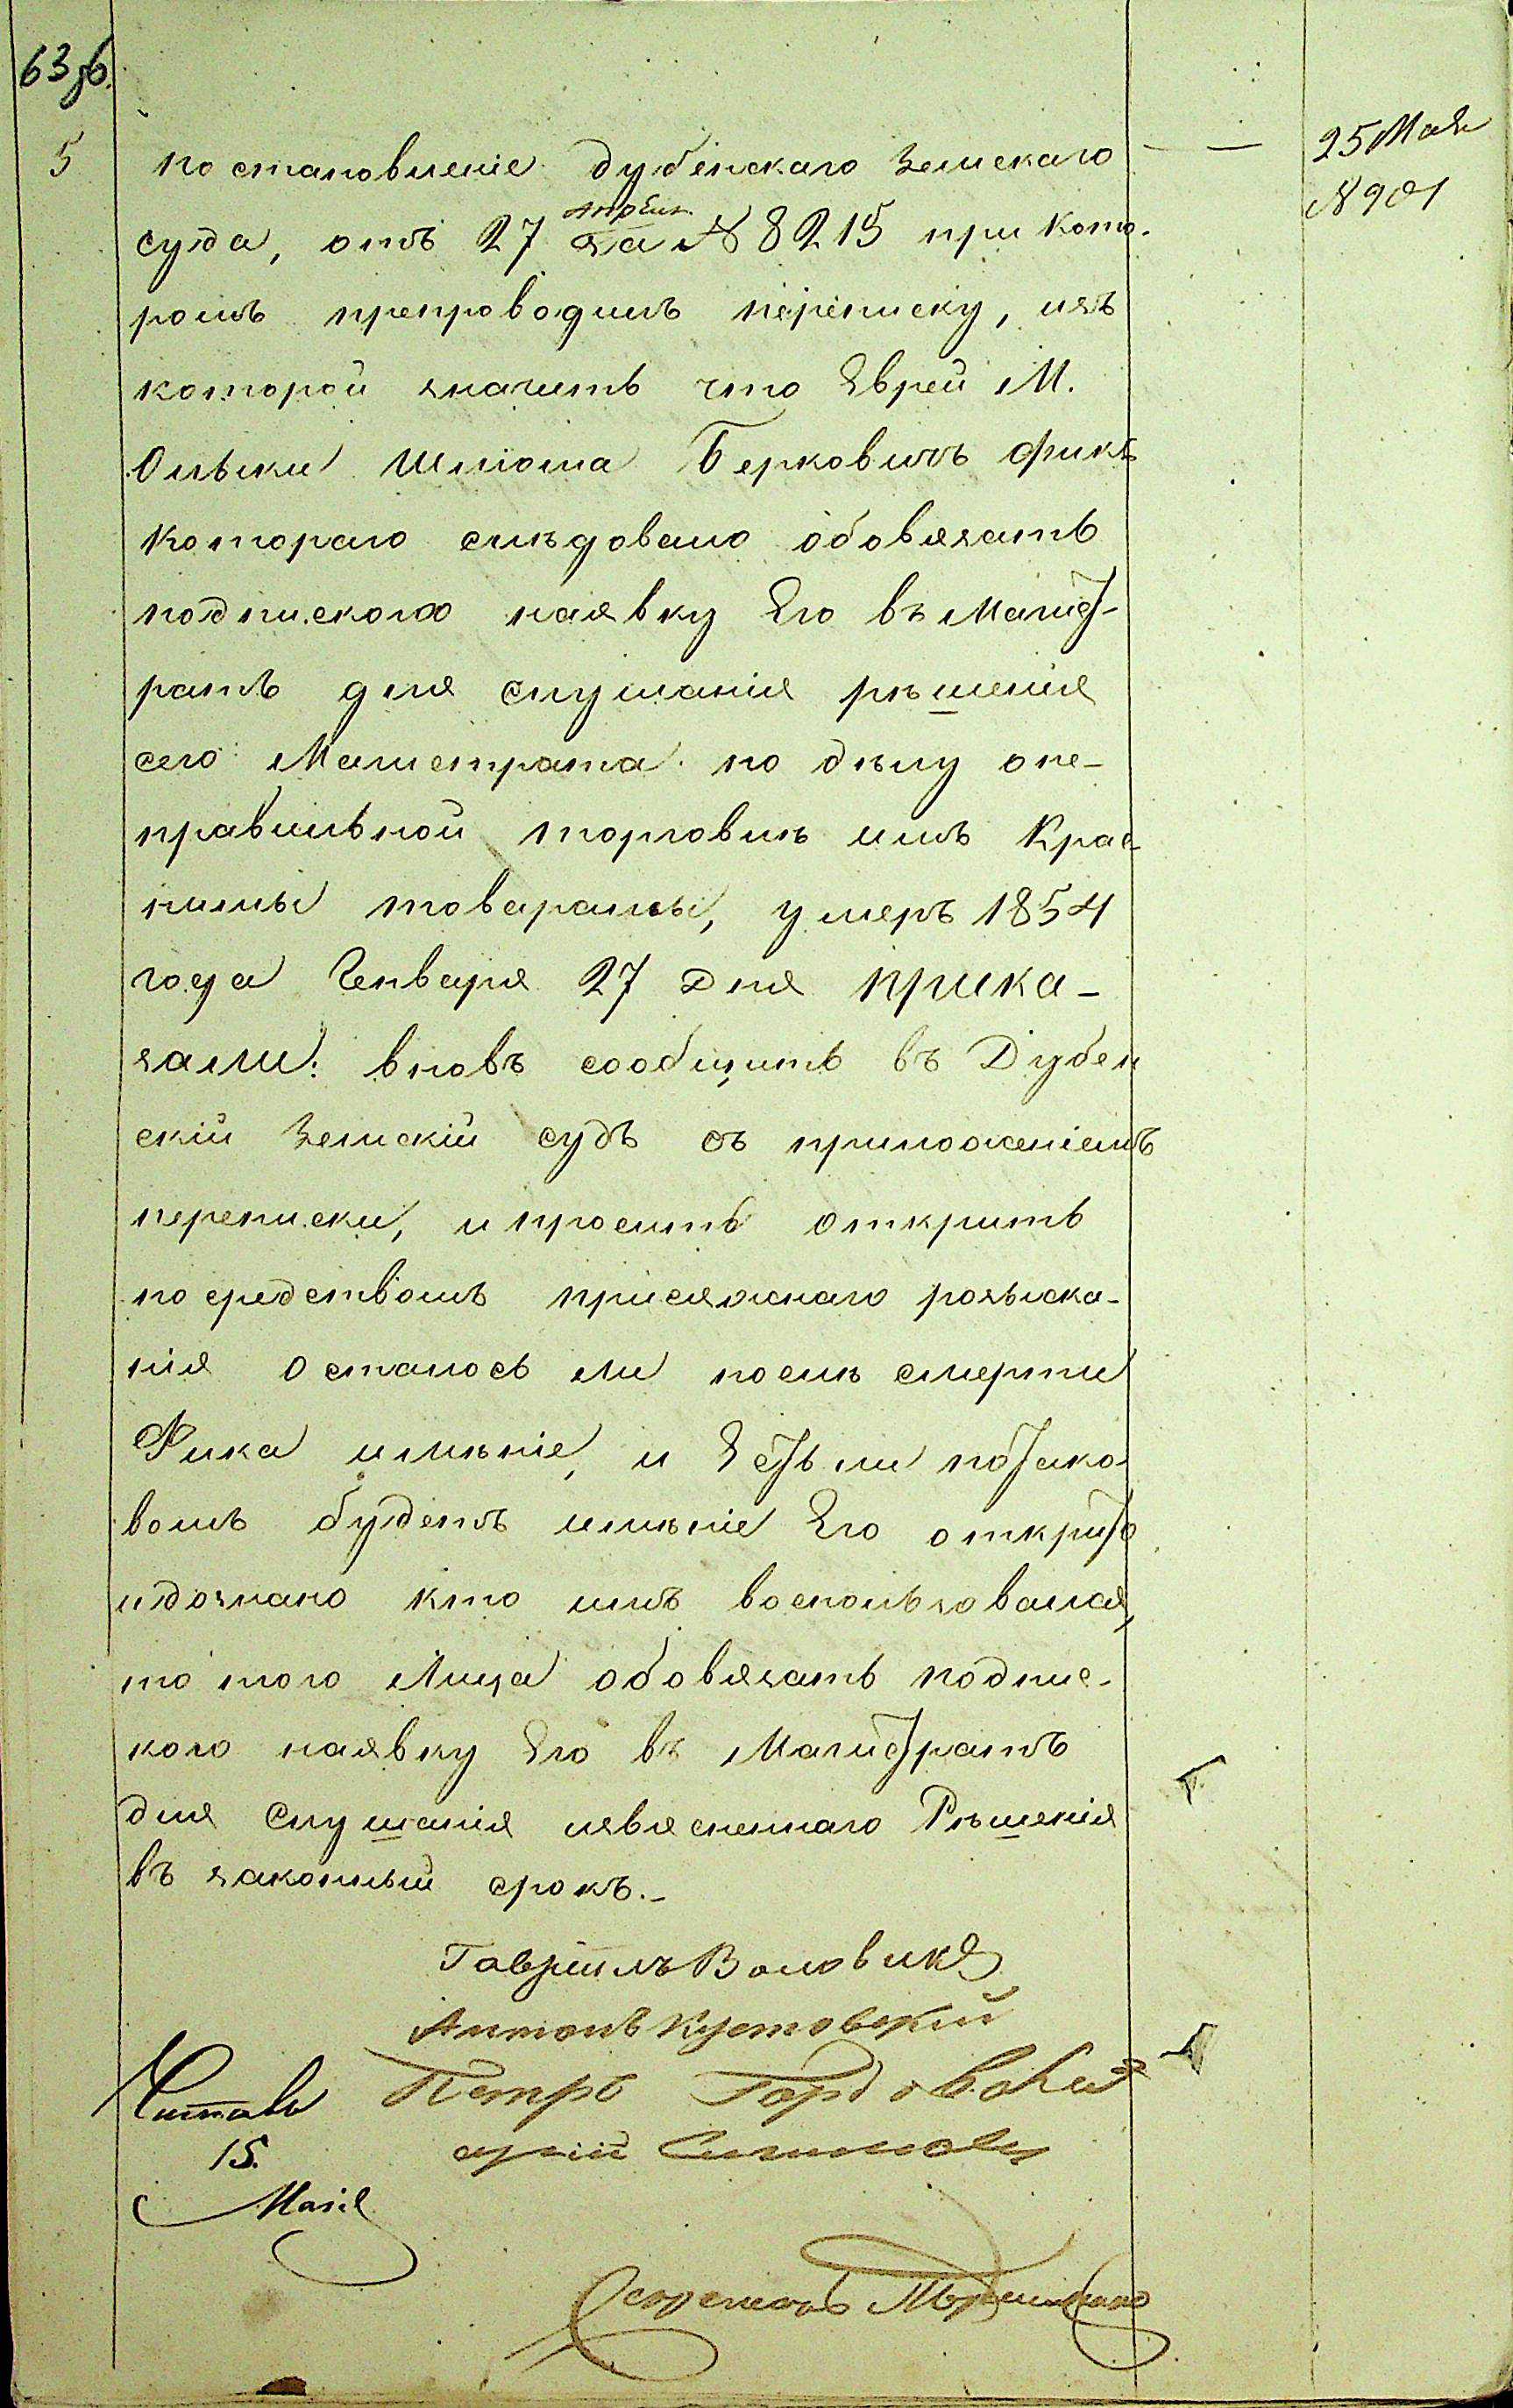 63 об.
5
постановленіе дубенскаго Земскаго
суда, отъ 27 Апрѣля за № 8215 при кото-
ромъ препроводилъ переписку, изъ
которой значитъ что Еврей М.
Олыки Шлиома Берковичъ Фикъ
котораго слѣдовало обовязать
подпискою наявку Его въ Магист-
ратъ для слушанія рѣшенія
сего Магистрата по дѣлу оне-
правильной торговлѣ имъ Крас-
ними товарамы, умеръ 1854
года Генваря 27 Дня прика-
зали: вновъ сообщить въ Дубен
скій Земскій судъ съ приложеніемъ
переписки, и просить открить
посредствомъ присяжнаго розыска-
нія осталось ли послѣ смерти
Фика имѣніе, и Естьли потако-
вомъ будетъ имѣніе Его открито
идознано кто имъ воспользовался,
то того Лица обовязать подпис-
кою наявку Его въ Магистратъ
для Слушанія изъясненнаго Рѣшенія
въ законный срокъ.-
Гавріилъ Воловикъ
Антонъ Кустовскій
Петръ Гордовскій
Читалъ
15.
Маія
Секретарь
25 Мая
№ 901